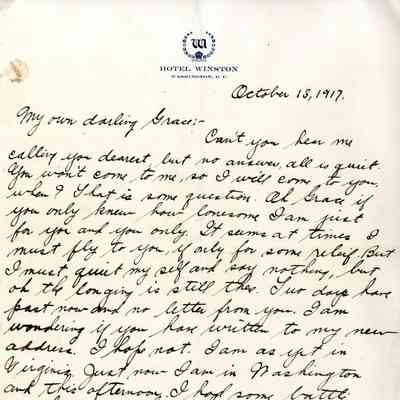 W
HOTEL WINSTON
WASHINGTON, D. C.
October 15, 1917.
My own darling Grace:-
Can't you hear me
calling you dearest, but no answer, all is quiet.
You won't come to me, so I will come to you,
when? That is some question. Oh Grace if
you only knew how lonesome I am just
for you and you only. It seems at times I
must fly to you, if only for some relief. But
I must, quiet my self and say nothing, but
oh the longing is still ther. Two days have
past now and no letter from you. I am
wondering if you have written to my new
address. I hope not. I am as yet in
Virginia. Just now I am in Washington
and this afternoon, I had some